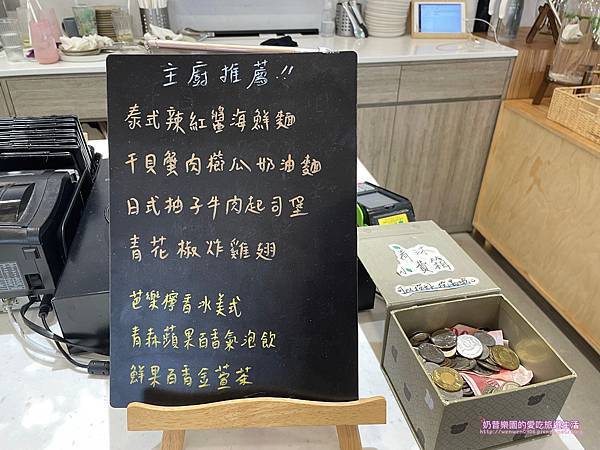 主廚推薦!!
泰式辣紅醬海鮮麵
干貝蟹肉櫛瓜奶油麵
日式柚子牛肉起司堡
青花椒炸雞翅
芭樂檸青冰美式
青森蘋果百香氣泡飲
鮮果百香金萱茶
小費箱
奶昔樂園的愛吃旅遊生活